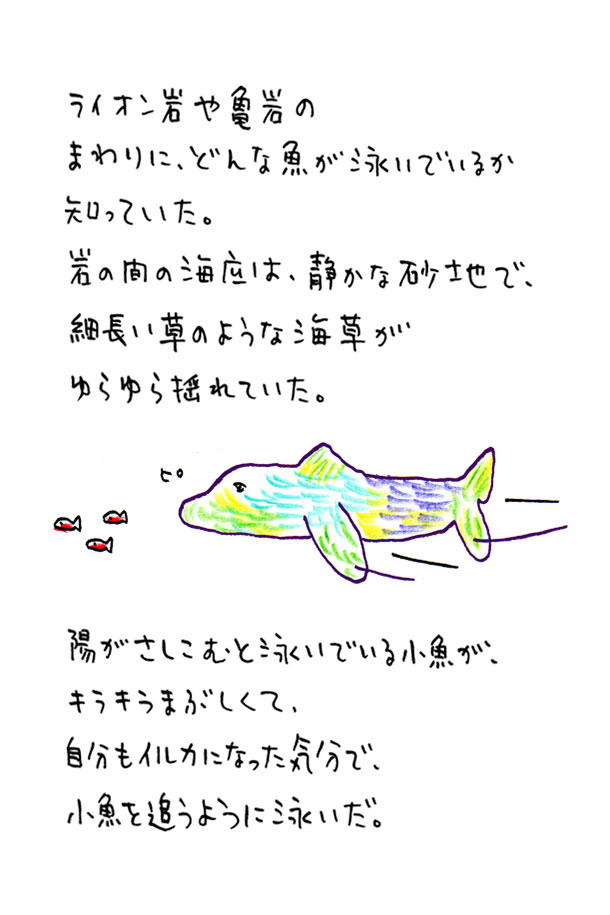 ライオン岩や亀岩の
まわりに、どんな魚が泳いでいるか
知っていた。
岩の間の海底は、静かな砂地で、
細長い草のような海草が
ゆらゆら揺れていた。
ピ
陽がさしこむと泳いでいる小魚が、
キラキラまぶしくて、
自分もイルカになった気分で、
小魚を追うように泳いだ。